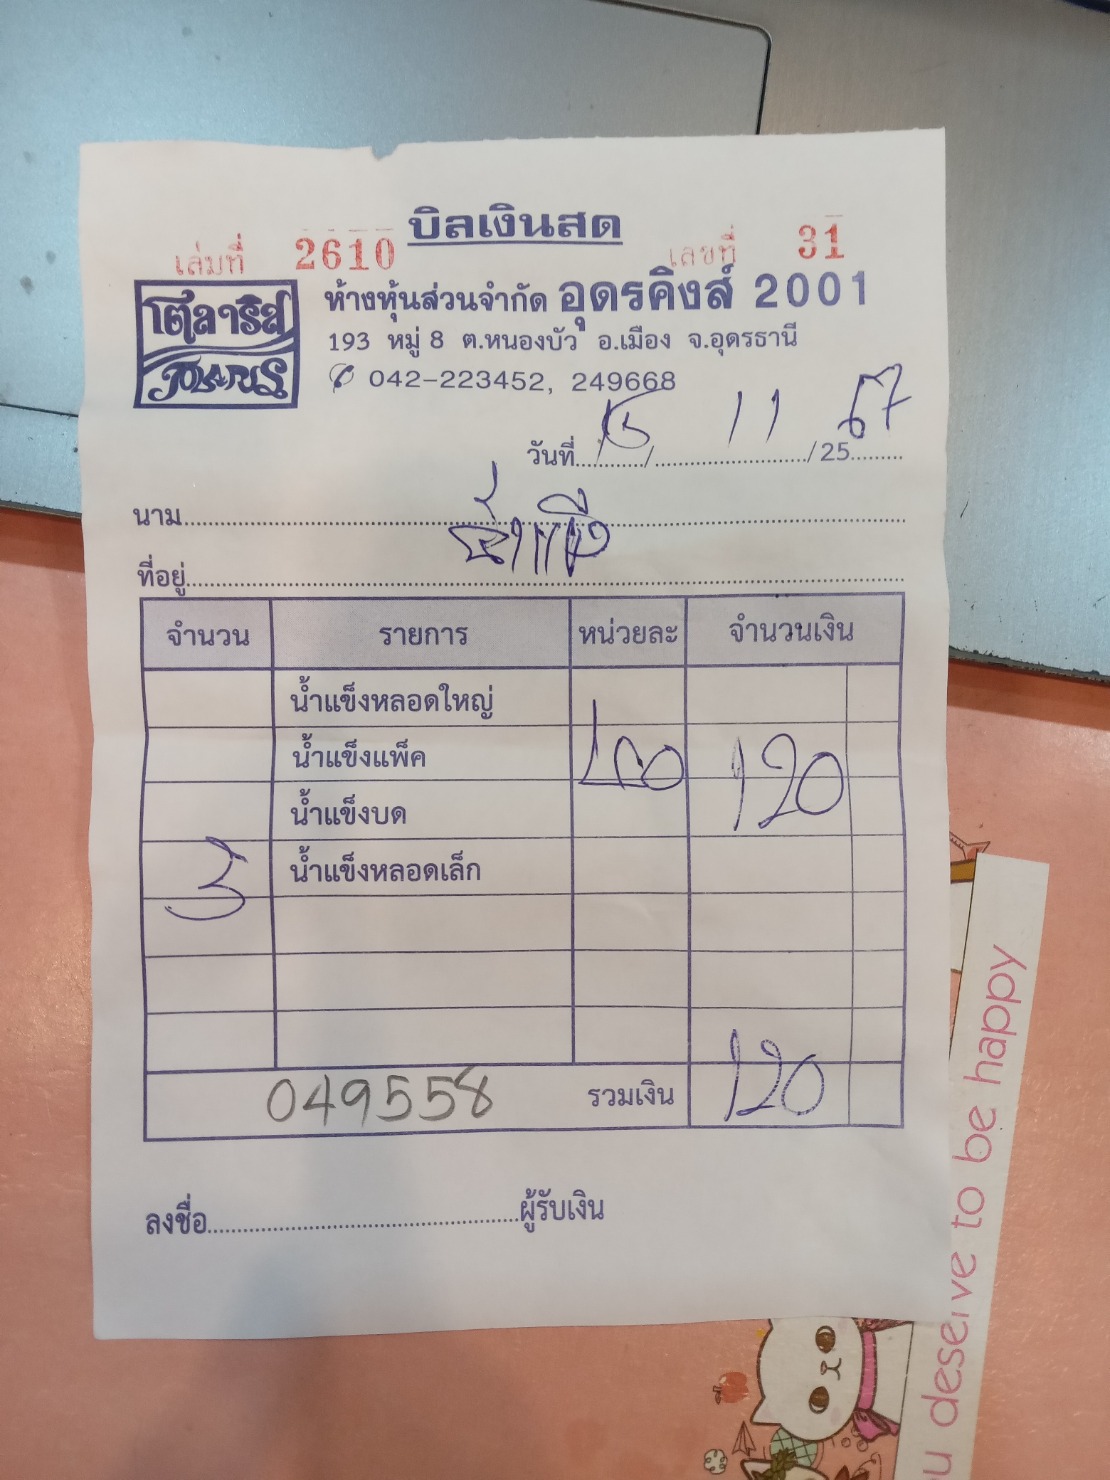 บิลเงินสด
เล่มที่ 2610 เลขที่ 31
โตลาริส
ห้างหุ้นส่วนจำกัด อุดรคิงส์ 2001
193 หมู่ 8 ต.หนองบัว อ.เมือง จ.อุดรธานี
✆ 042-223452, 249668
วันที่ 15 / 11 / 25 67
นาม
ที่อยู่
จำนวน รายการ หน่วยละ จำนวนเงิน
น้ำแข็งหลอดใหญ่
น้ำแข็งแพ็ค 120
น้ำแข็งบด
3 น้ำแข็งหลอดเล็ก
049558 รวมเงิน 120
ลงชื่อ ผู้รับเงิน
u deserve to be happy